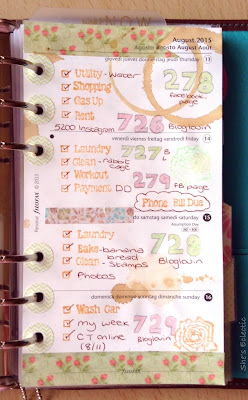 NOW
August 2015
Agosto agosto August Août
giovedì jueves donnerstag jeudi thursday 13
Utility - Water 278
Shopping facebook page
Gas Up
Rent 726
5200 Instagram Bloglovin
venerdì viernes freitag vendredi friday 14
Laundry 727 B L
Clean - rabbit cage
Workout 279
Payment DD FB page
Phone Bill Due
sabato sábado samstag samedi saturday 15
Assumption Day
Laundry 728
Bake - banana bread
Clean - Stamps Bloglovin
Photos
domenica domingo sonntag dimanche sunday 16
Wash Car
my week 729
CT online Bloglovin
(8/11)
filofax
Personal filofax © 2013
She's Eclectic